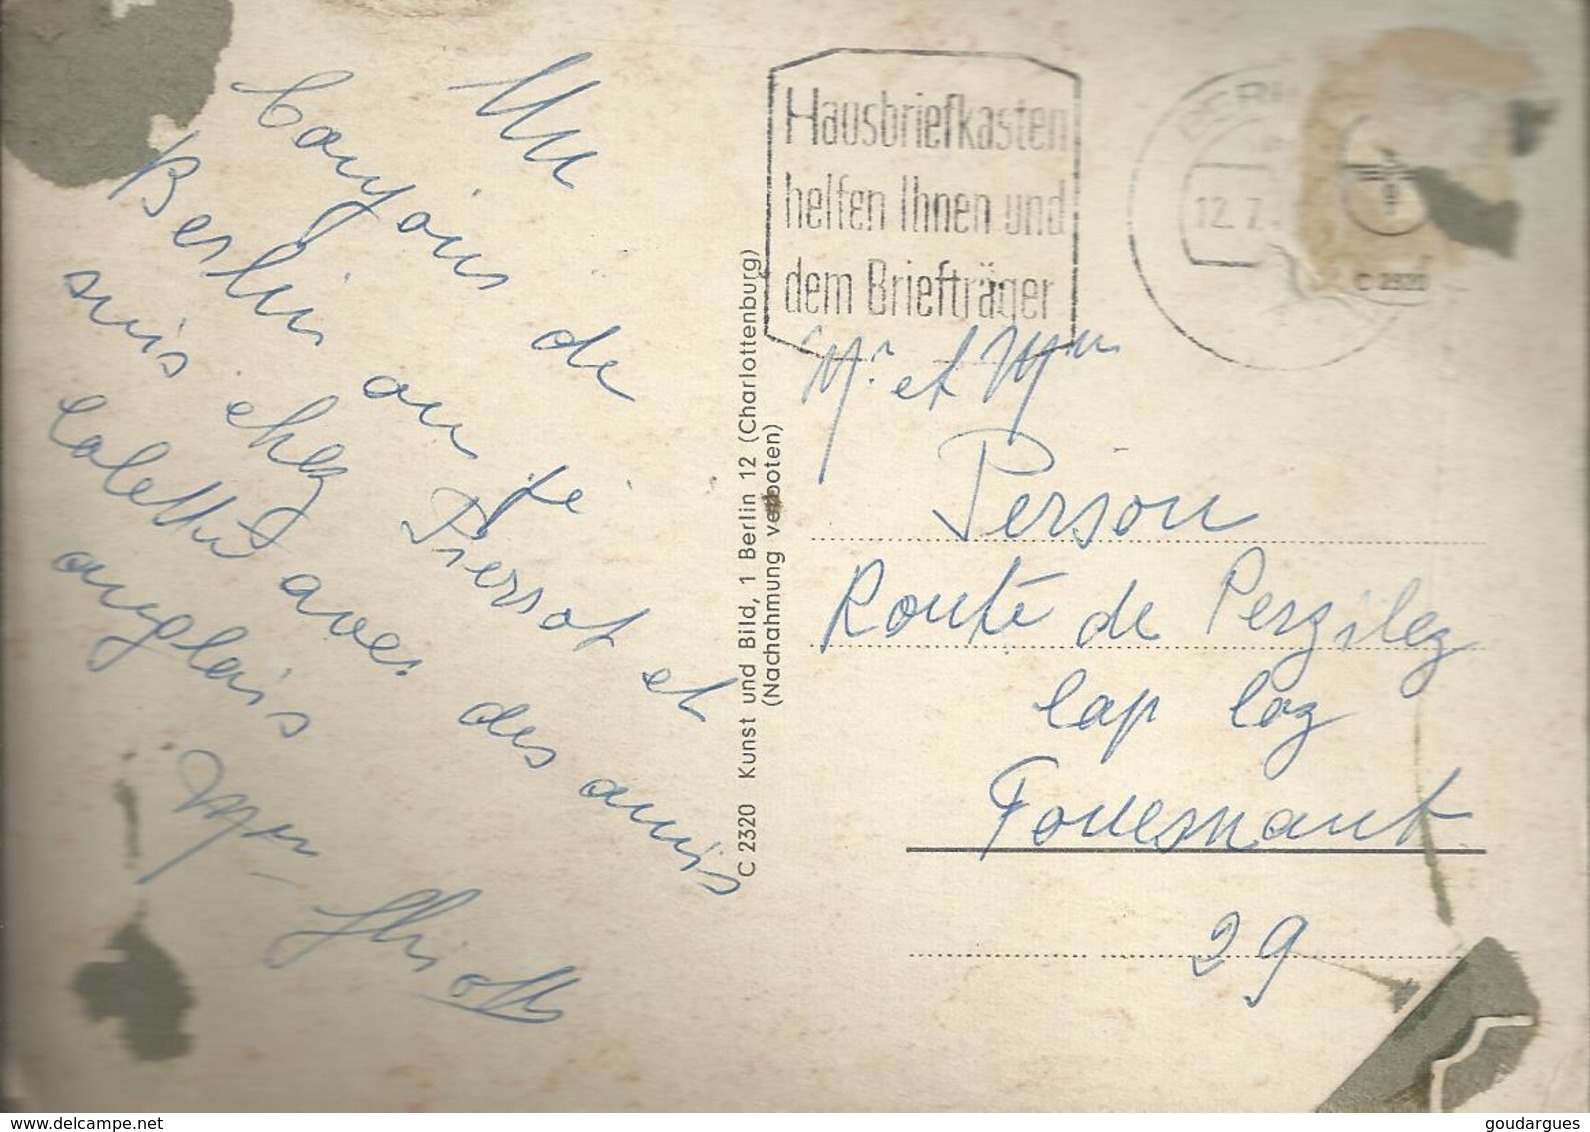 Un
bonjour de
Berlin ou je
suis chez Pierrot et
Colette avec des amis
anglais
C 2320 Kunst und Bild, 1 Berlin 12 (Charlottenburg)
(Nachahmung verboten)
Hausbriefkasten
helfen Ihnen und
dem Briefträger
12. 7.
C 2320
Mr et Mme
Person
Route de Perzilez
Cap Coz
Fouesnant
29
goudargues
delcampe.net